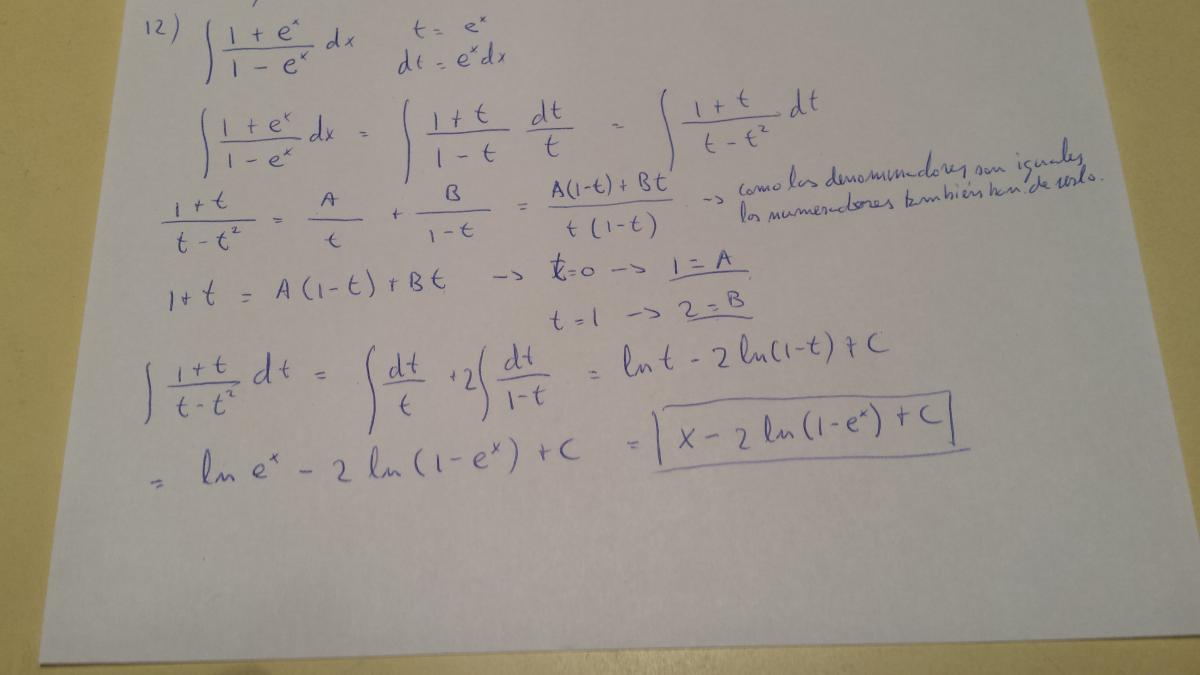 12) ∫ (1 + eˣ)/(1 - eˣ) dx t = eˣ
dt = eˣdx
∫ (1 + eˣ)/(1 - eˣ) dx = ∫ (1 + t)/(1 - t) dt/t = ∫ (1 + t)/(t - t²) dt
(1 + t)/(t - t²) = A/t + B/(1-t) = (A(1-t) + Bt)/(t(1-t)) → como los denominadores son iguales
los numeradores también han de serlo.
1 + t = A(1-t) + Bt → t=0 → 1 = A
t = 1 → 2 = B
∫ (1 + t)/(t - t²) dt = ∫ dt/t + 2∫ dt/(1-t) = ln t - 2 ln(1-t) + C
= ln eˣ - 2 ln(1-eˣ) + C = x - 2 ln(1-eˣ) + C